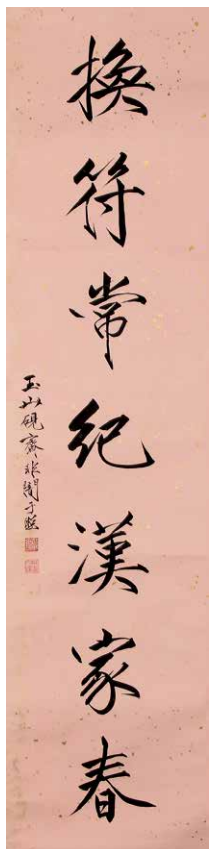 換符常紀漢家春
玉山硯齋非闇于照